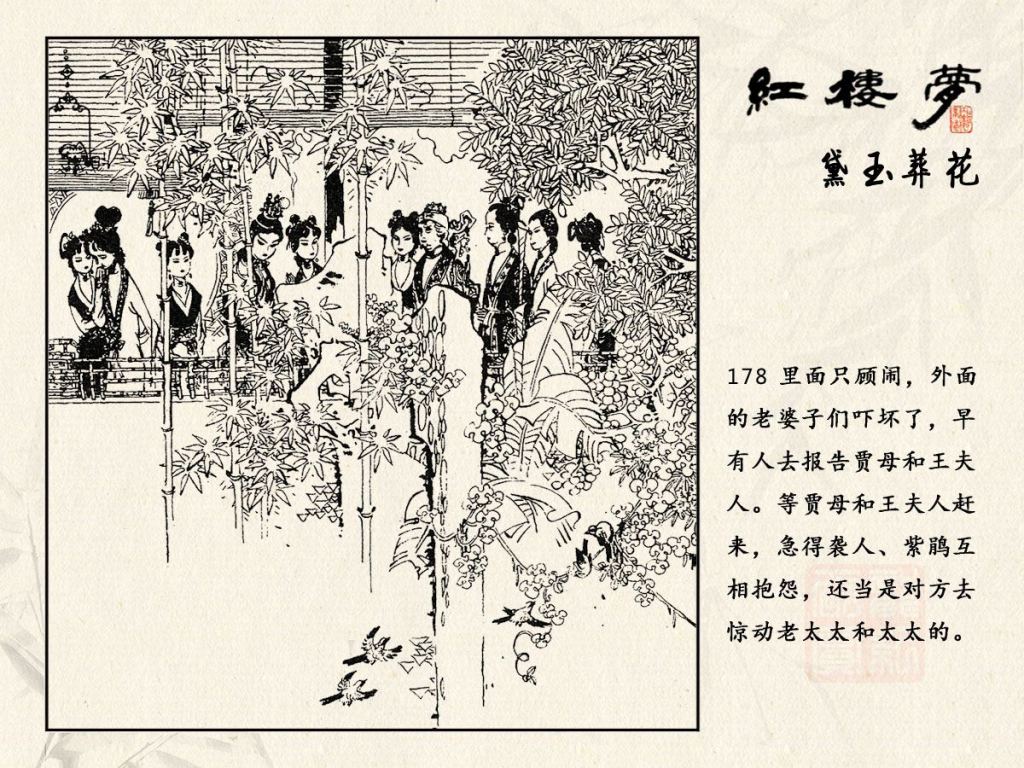 紅楼夢
黛玉葬花
178 里面只顾闹，外面
的老婆子们吓坏了，早
有人去报告贾母和王夫
人。等贾母和王夫人赶
来，急得袭人、紫鹃互
相抱怨，还当是对方去
惊动老太太和太太的。